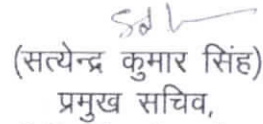 (सत्येन्द्र कुमार सिंह)
प्रमुख सचिव,